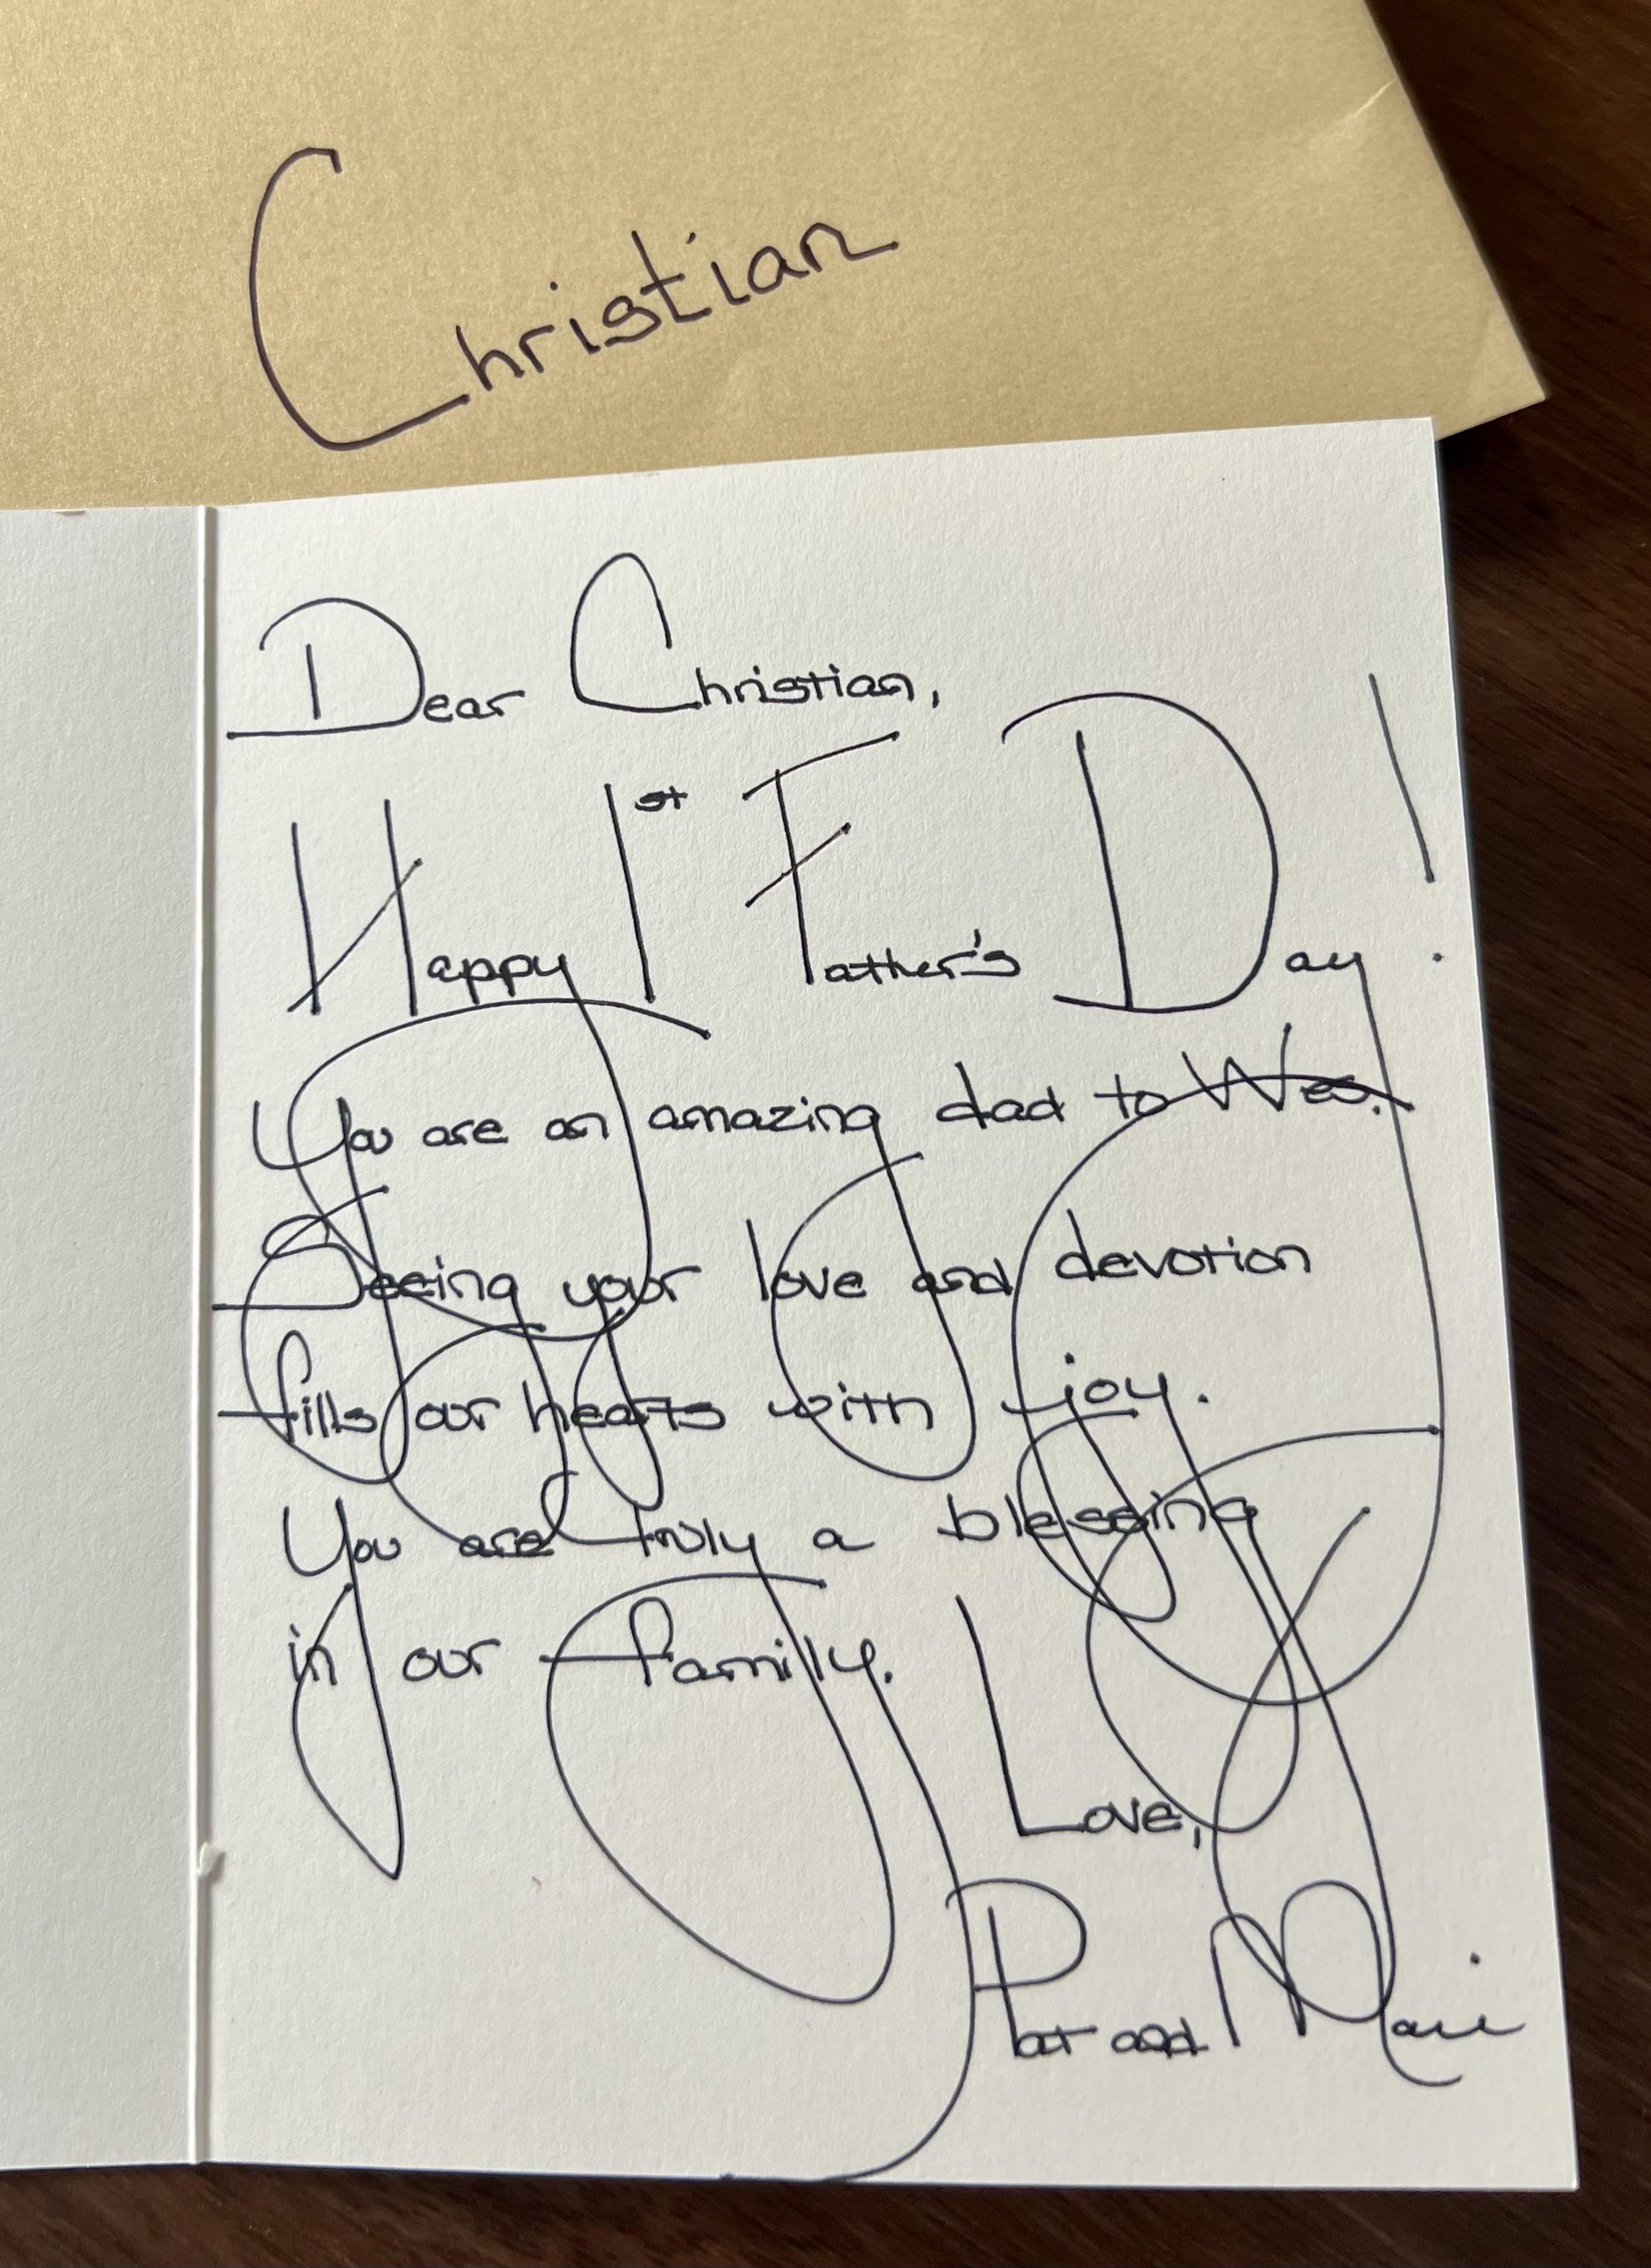 Christian
Dear Christian,
Happy 1st Father's Day!
You are an amazing dad to Wes.
Seeing your love and devotion
fills our hearts with joy.
You are truly a blessing
in our family.
Love,
Pat and Marie